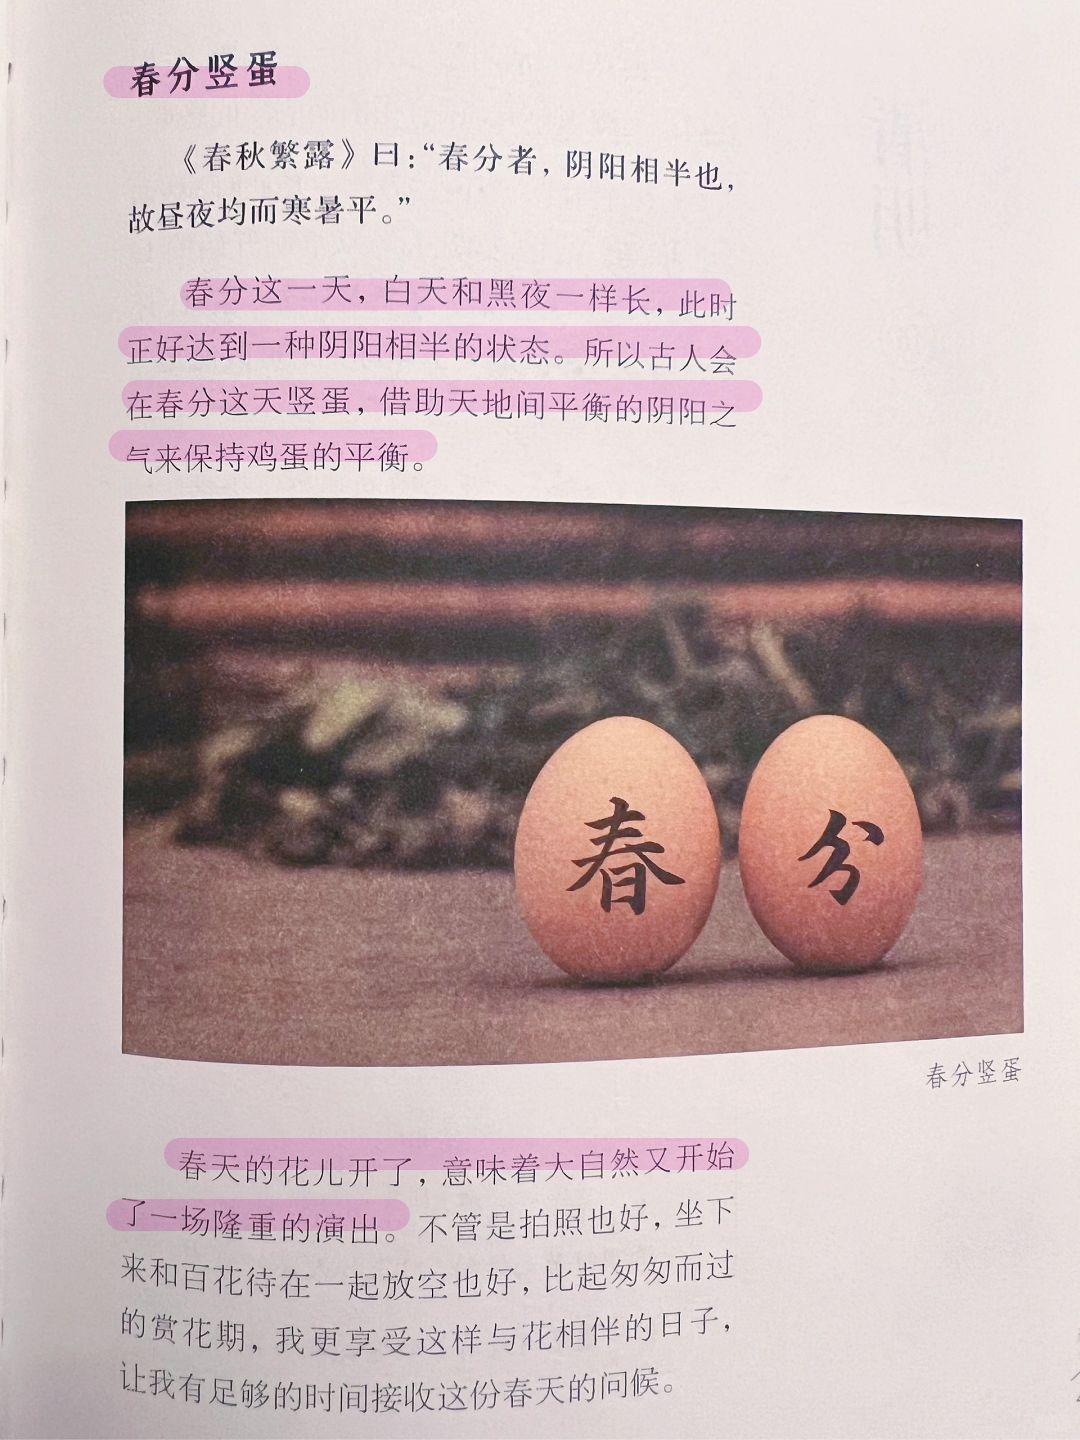 春分竖蛋
《春秋繁露》曰：“春分者，阴阳相半也，
故昼夜均而寒暑平。”
春分这一天，白天和黑夜一样长，此时
正好达到一种阴阳相半的状态。所以古人会
在春分这天竖蛋，借助天地间平衡的阴阳之
气来保持鸡蛋的平衡。
春 分
春分竖蛋
春天的花儿开了，意味着大自然又开始
了一场隆重的演出。不管是拍照也好，坐下
来和百花待在一起放空也好，比起匆匆而过
的赏花期，我更享受这样与花相伴的日子，
让我有足够的时间接收这份春天的问候。